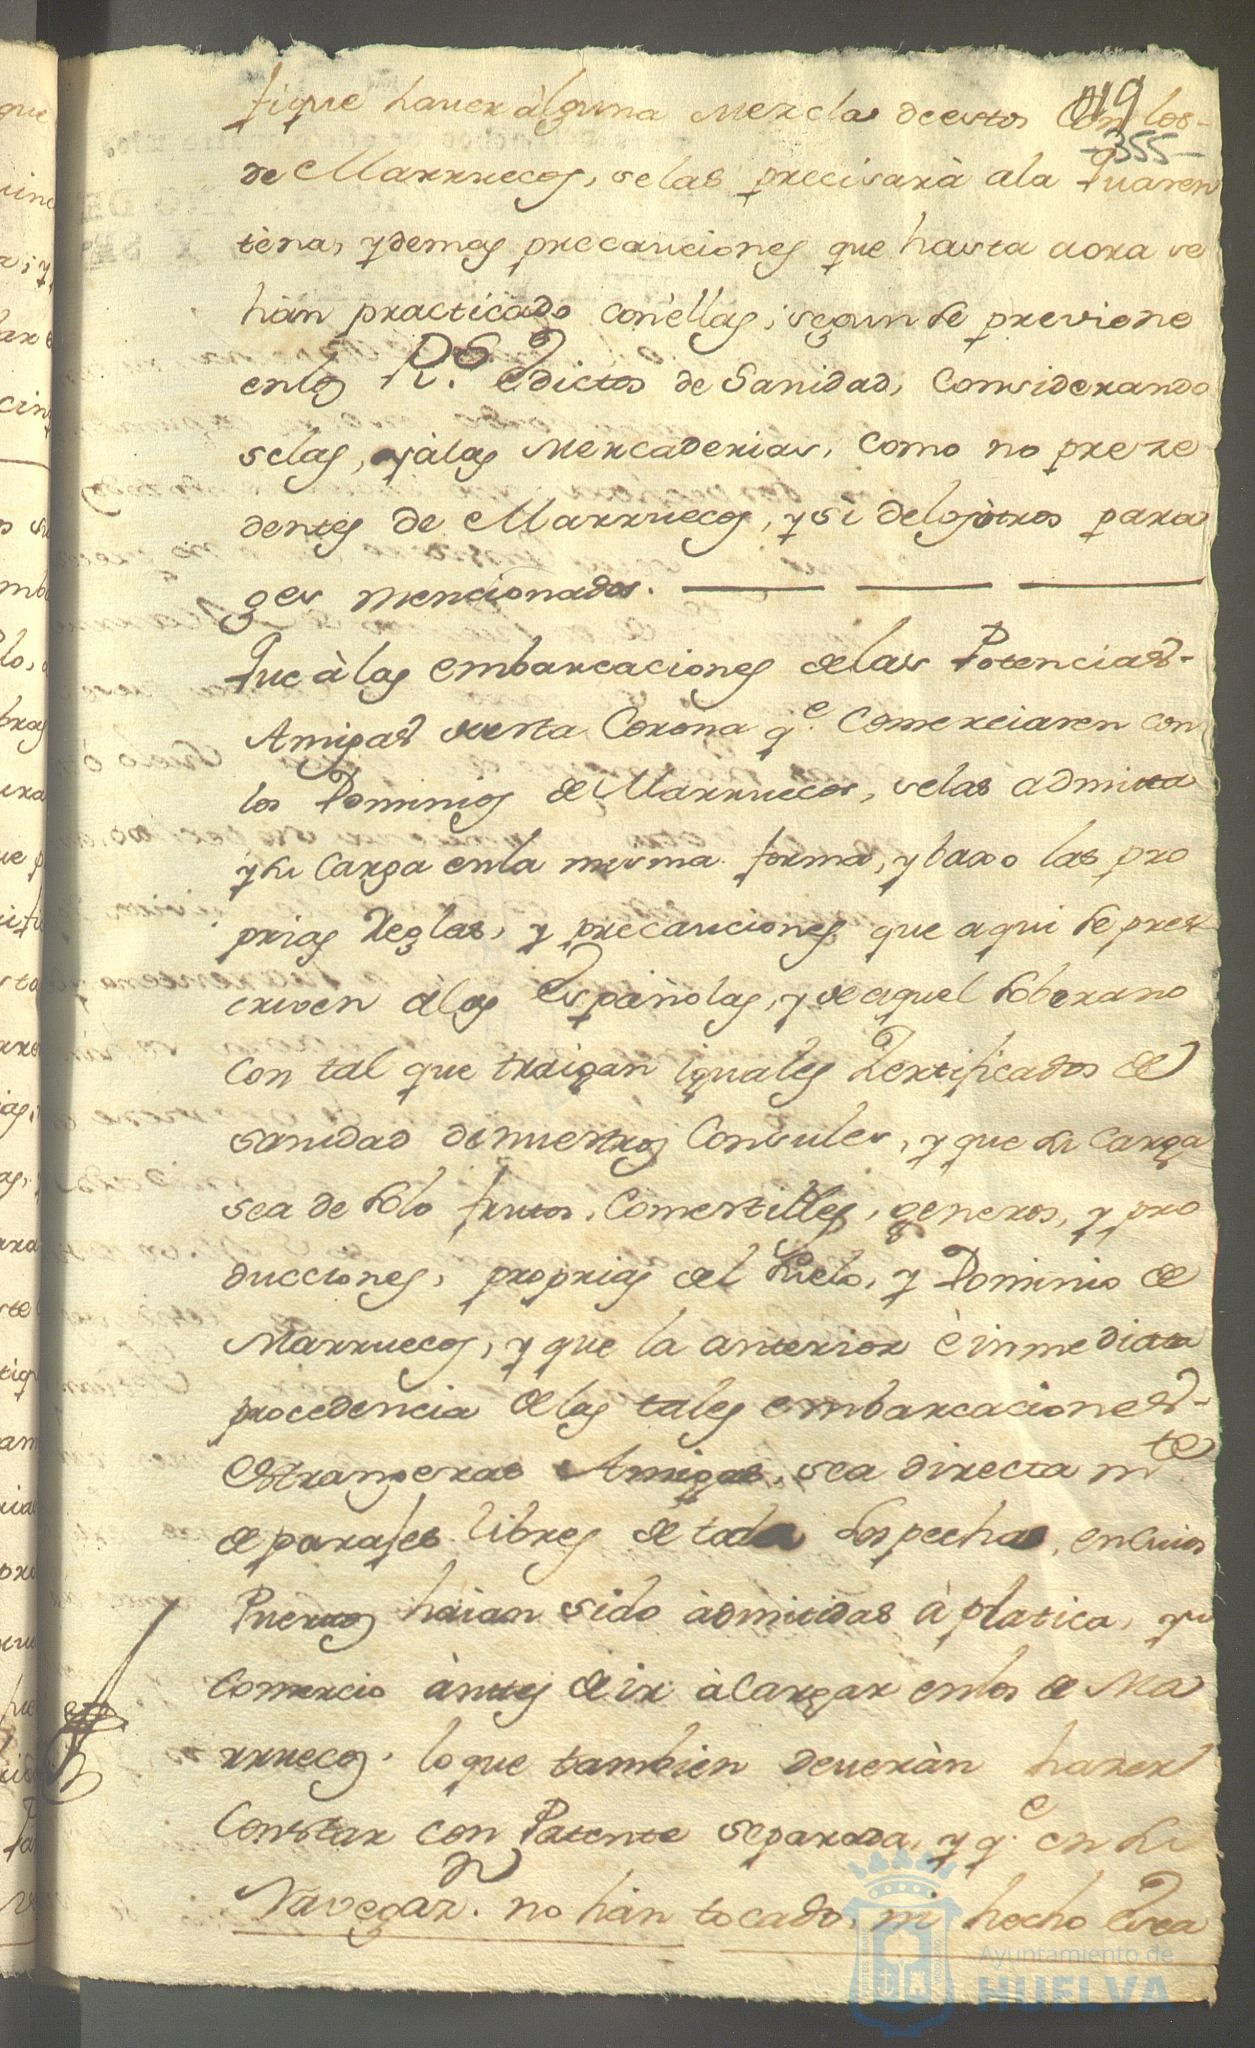 019
-355-
fique haver àlguna Mezcla de estos con los-
de Marruecos, se las precisarà a la Quaren
tèna, y demas precauciones que hasta aora se
hàn practicado con èllas, segun se previene
en los R.s Edictos de Sanidad, Considerando
selas, y à las Mercaderias, como no preze
dentes de Marruecos, y si de los òtros para
ges mencionados.
Que à las embarcaciones de las Potencias-
Amigas de esta Corona q.e Comerciaren con
los Dominios de Marruecos, se las admita
y su Carga en la misma forma, y baxo las pro
prias Reglas, y precauciones que aqui se pres
criven à las Españolas, y de aquel Soberano
con tal que traigan iguales Zertificados de
sanidad de nuestros Consules, y que su Carga
sea de solo frutos, Comestibles, generos, y pro
ducciones, proprias del Suelo, y Dominio de
Marruecos, y que la anterior è inmediata
procedencia de las tales embarcaciones-
Estrangeras Amigas, sea directa m.te
de parajes libres de toda sospecha, en cuios
Puertos haian sido àdmitidas à platica, y su
Comercio àntes de ir à Cargar en los de Ma
rruecos, lo que tambien deveràn hazer
Constar con Patente separada, y q.e en su
Navegaz.n no hàn tocado, ni hecho Esca
Ayuntamiento de
HUELVA